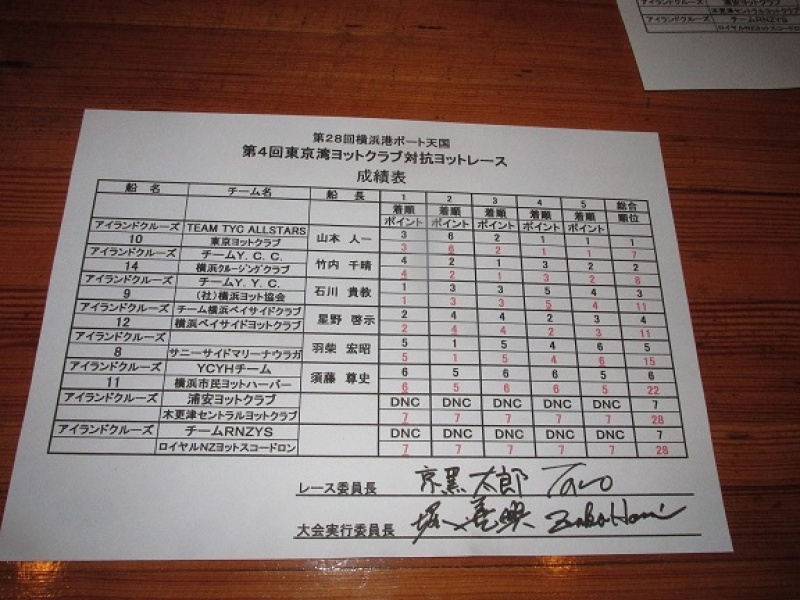 浦安ヨットクラブ
アイランドクルーズ 木更津セントラルヨットクラブ
アイランドクルーズ チームRNZYS
ロイヤルNZヨットスコードロン
第28回横浜港ボート天国
第4回東京湾ヨットクラブ対抗ヨットレース
成績表
船 名 チーム名 船 長 1 2 3 4 5 総合
着順 着順 着順 着順 着順 順位
ポイント ポイント ポイント ポイント ポイント
アイランドクルーズ TEAM TYC ALLSTARS 山本 人一 3 6 2 1 1 1
10 東京ヨットクラブ 3 6 2 1 1 7
アイランドクルーズ チームY. C. C. 竹内 千晴 4 2 1 3 2 2
14 横浜クルージングクラブ 4 2 1 3 2 8
アイランドクルーズ チームY. Y. C. 石川 貴教 1 3 3 5 4 3
9 (社)横浜ヨット協会 1 3 3 5 4 11
アイランドクルーズ チーム横浜ベイサイドクラブ 星野 啓示 2 4 4 2 3 4
12 横浜ベイサイドヨットクラブ 2 4 4 2 3 11
アイランドクルーズ 羽柴 宏昭 5 1 5 4 6 5
8 サニーサイドマリーナウラガ 5 1 5 4 6 15
アイランドクルーズ YCYHチーム 須藤 尊史 6 5 6 6 5 6
11 横浜市民ヨットハーバー 6 5 6 6 5 22
アイランドクルーズ 浦安ヨットクラブ DNC DNC DNC DNC DNC 7
木更津セントラルヨットクラブ 7 7 7 7 7 28
アイランドクルーズ チームRNZYS DNC DNC DNC DNC DNC 7
ロイヤルNZヨットスコードロン 7 7 7 7 7 28
レース委員長 京黒 太郎 Taro
大会実行委員長 堀